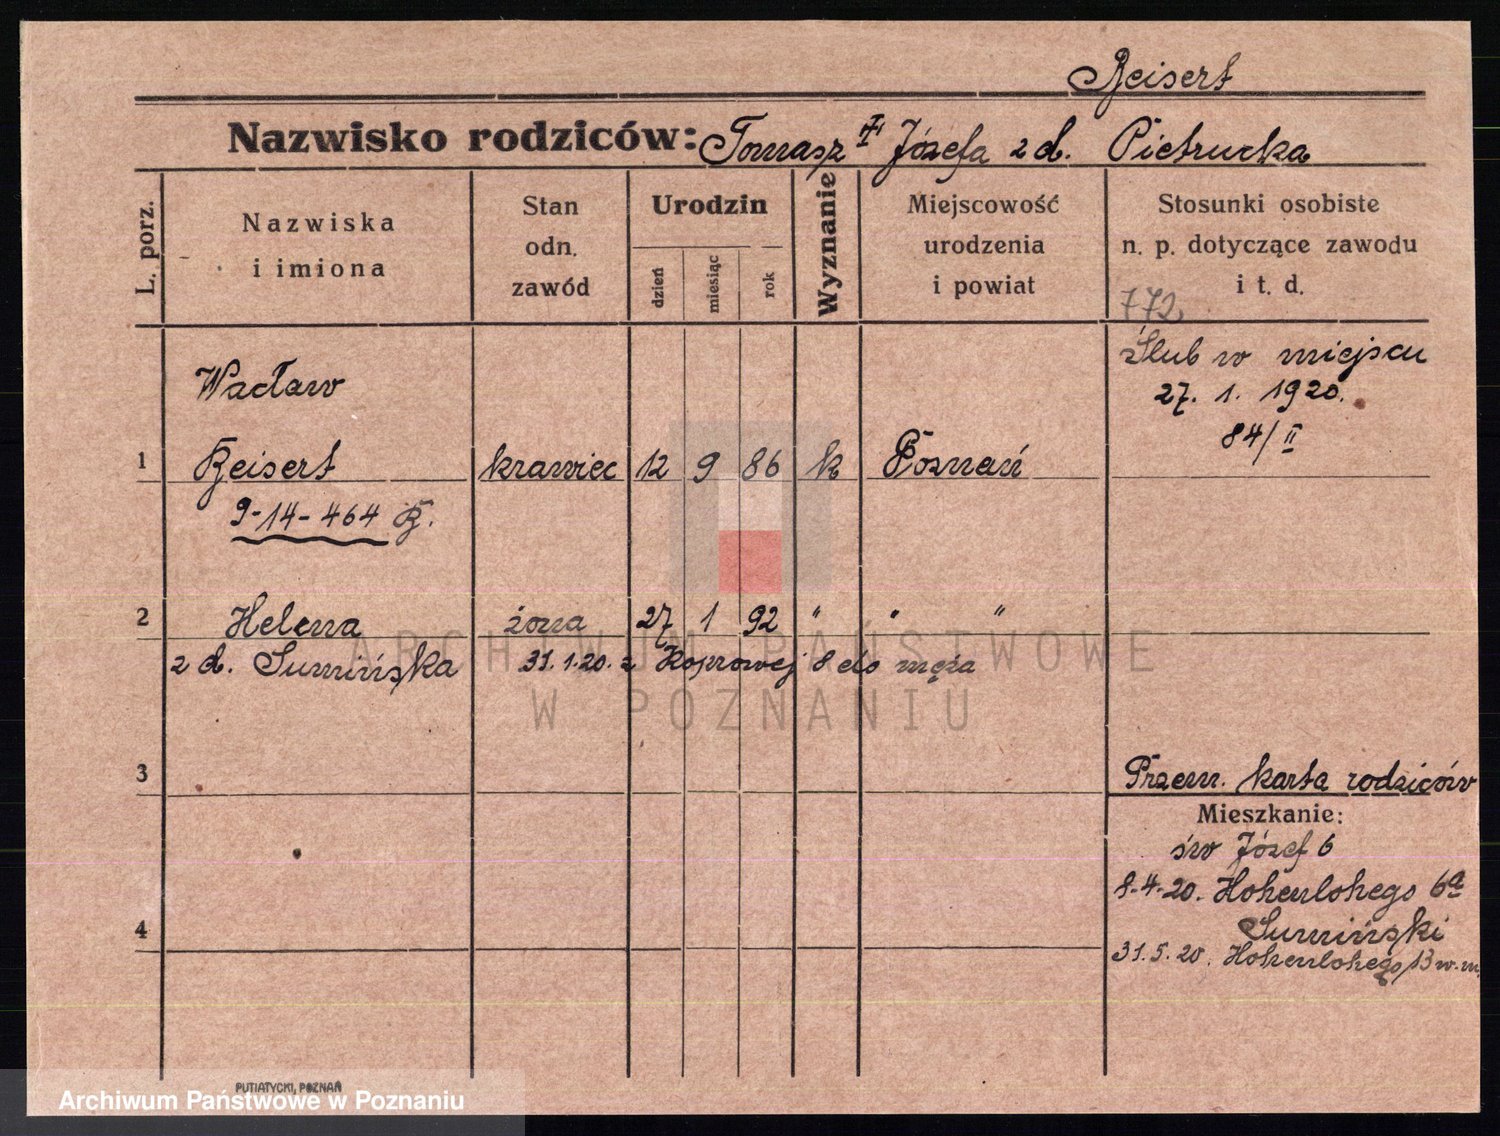 Beisert
Nazwisko rodziców: Tomasz i Józefa z d. Pietrucka
L. porz.
Nazwiska
i imiona
Stan
odn.
zawód
Urodzin
dzień
miesiąc
rok
Wyznanie
Miejscowość
urodzenia
i powiat
Stosunki osobiste
n. p. dotyczące zawodu
i t. d.
772
Ślub w miejscu
27. 1. 1920.
84/II
Wacław
1 Beisert krawiec 12 9 86 k Poznań
9-14-464 B.
2 Helena żona 27 1 92 " " "
z d. Sumińska 31.1.20. z Koprowej 8 do męża
3
Przem. karta rodziców
Mieszkanie:
św Józef 6
8.4.20. Hohenlohego 6a
Sumiński
4
31.5.20. Hohenlohego 13 w.m
PUTIATYCKI, POZNAŃ
ARCHIWUM PAŃSTWOWE
W POZNANIU
Archiwum Państwowe w Poznaniu